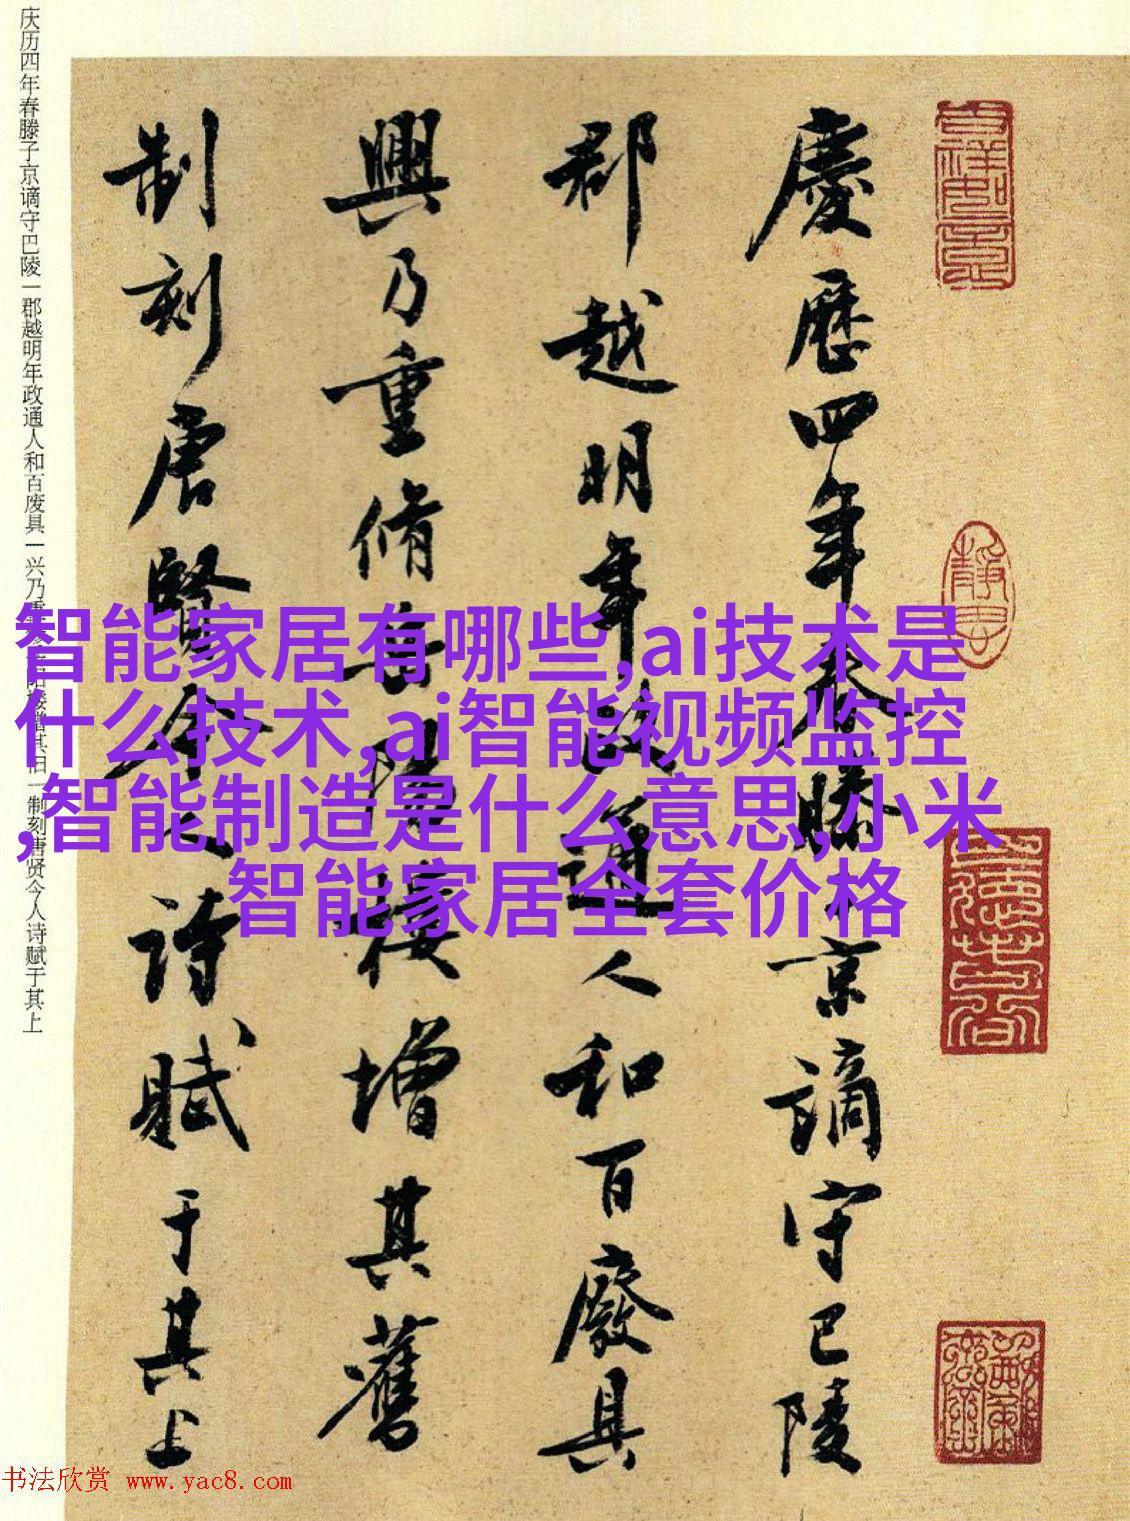 慶歷四年春滕子京謫守巴陵
郡越明年政通人和百廢具
興乃重脩岳陽樓增其舊
制刻唐賢今人詩賦于其上
庆历四年春滕子京谪守巴陵一郡越明年政通人和百废具一兴乃重 楼增其旧一制刻唐贤今人诗赋于其上
智能家居有哪些,ai技术是
什么技术,ai智能视频监控
,智能制造是什么意思,小米
智能家居全套价格
书法欣赏 www.yac8.com